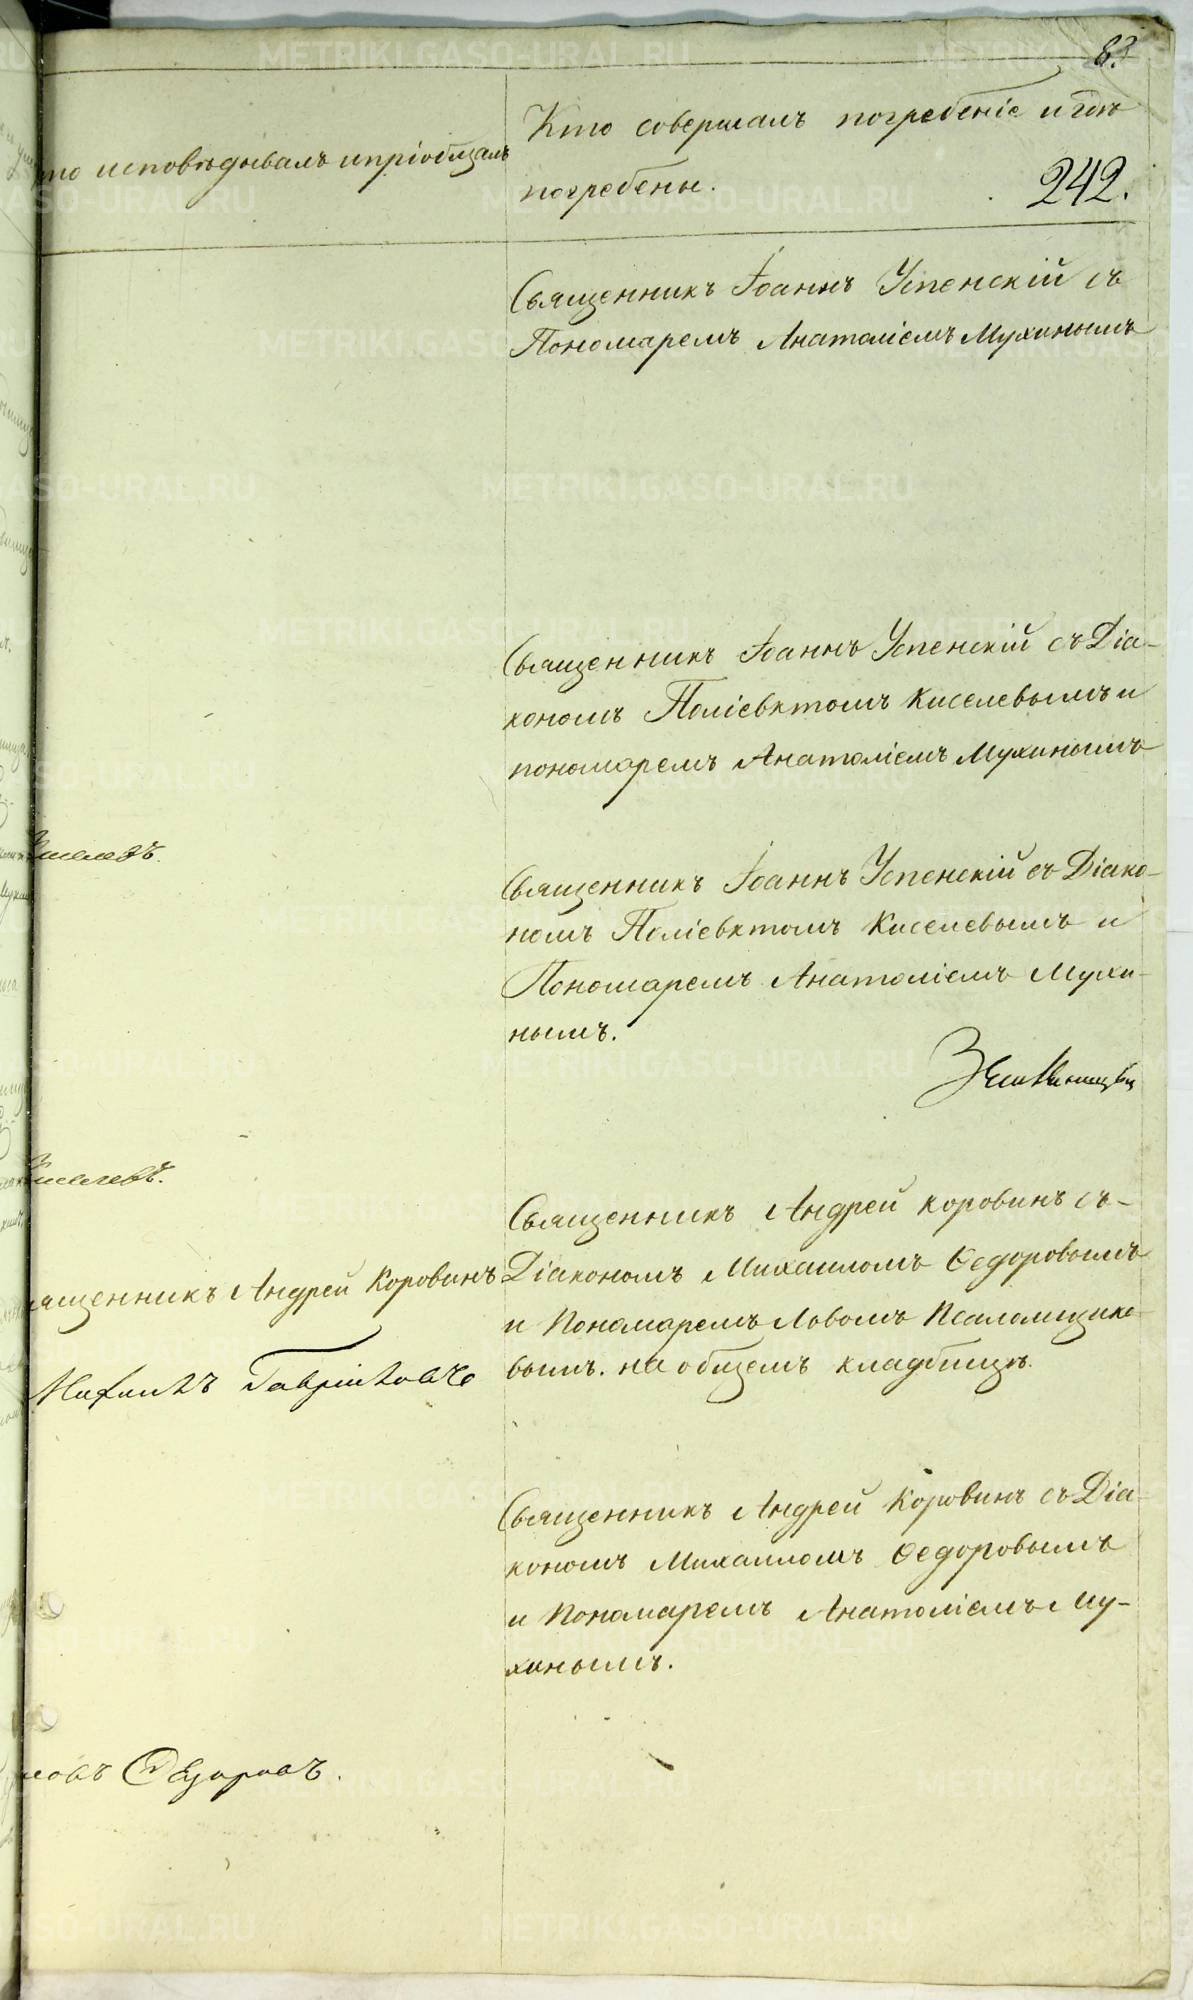 83.
Кто совершалъ погребеніе и гдѣ
то исповѣдывалъ и пріобщалъ
погребены.
242.
Священникъ Іоаннъ Успенскій съ
Пономаремъ Анатоліемъ Мухинымъ
Священникъ Іоаннъ Успенскій съ Діа-
кономъ Поліевктомъ Киселевымъ и
пономаремъ Анатоліемъ Мухинымъ
Священникъ Іоаннъ Успенскій съ Діако-
номъ Поліевктомъ Киселевымъ и
Пономаремъ Анатоліемъ Мухи-
нымъ.
Священникъ Андрей Коровинъ съ-
Діакономъ Михаиломъ Ѳедоровымъ
и Пономаремъ Іовомъ Псаломщико-
вымъ. на общемъ кладбищѣ.
ященникъ Андрей Коровинъ
Священникъ Андрей Коровинъ съ Діа-
кономъ Михаиломъ Ѳедоровымъ
и Пономаремъ Анатоліемъ Му-
хинымъ.
METRIKI.GASO-URAL.RU